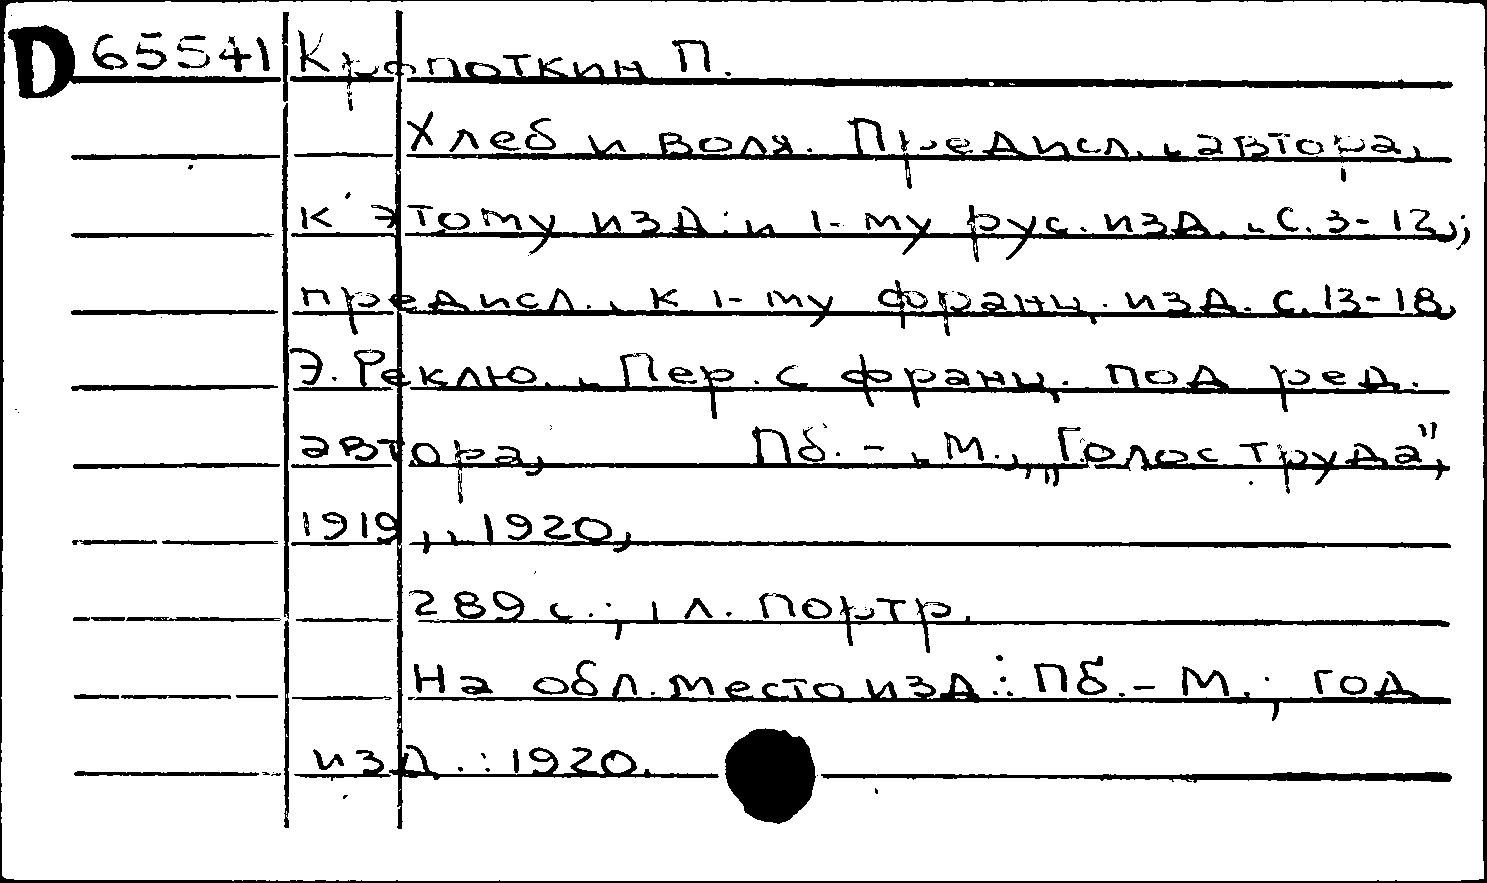 D 65541 Кропоткин П.
Хлеб и воля. Предисл. автора,
к этому изд. и 1-му рус. изд., с. 3-12,;
предисл., к 1-му франц. изд. с. 13-18,
Э. Реклю. Пер. с франц. под ред.
автора, Пб. - М., „Голос труда",
1919, 1920,
289 с.; 1 л. портр.
На обл. место изд.: Пб. - М.; год
изд.: 1920.